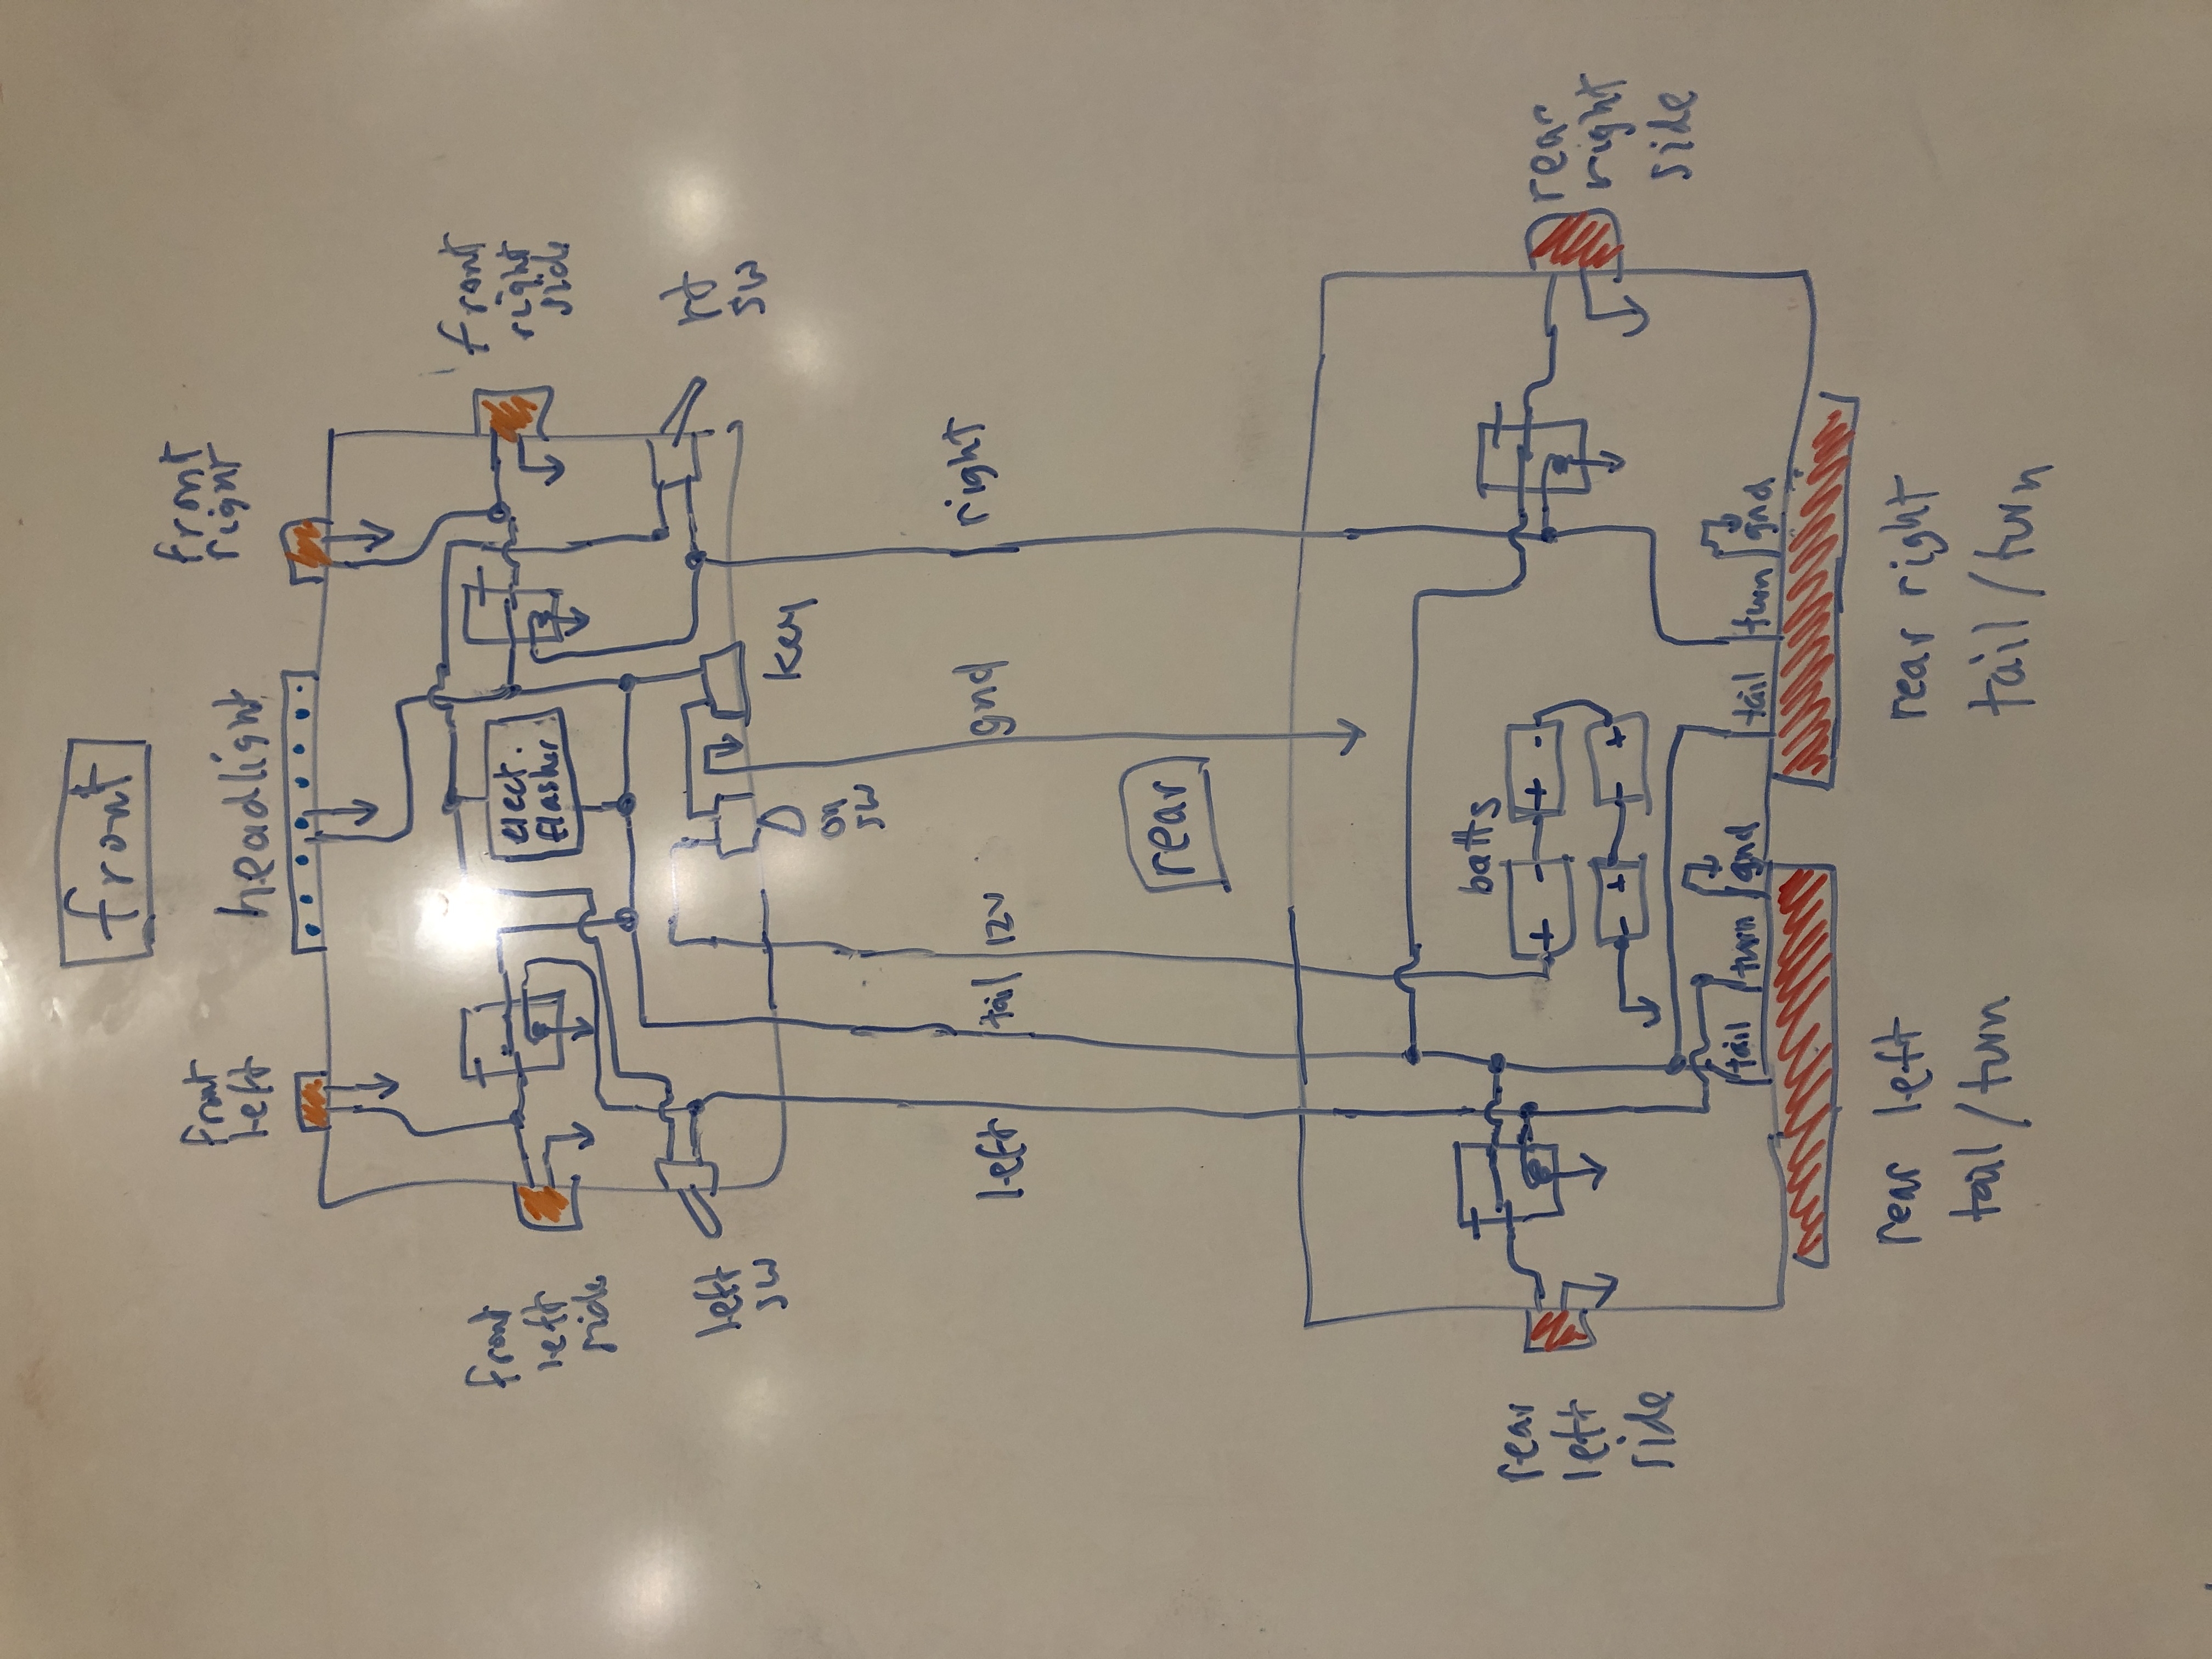 front
headlight
front
left
front
right
front
left
side
front
right
side
elect.
flasher
left
sw
on
sw
key
rt
sw
left
tail
12v
gnd
right
rear
batts
+ - + -
- + + +
rear
left
side
rear
right
side
tail
turn
gnd
tail
turn
gnd
rear left
tail/turn
rear right
tail/turn